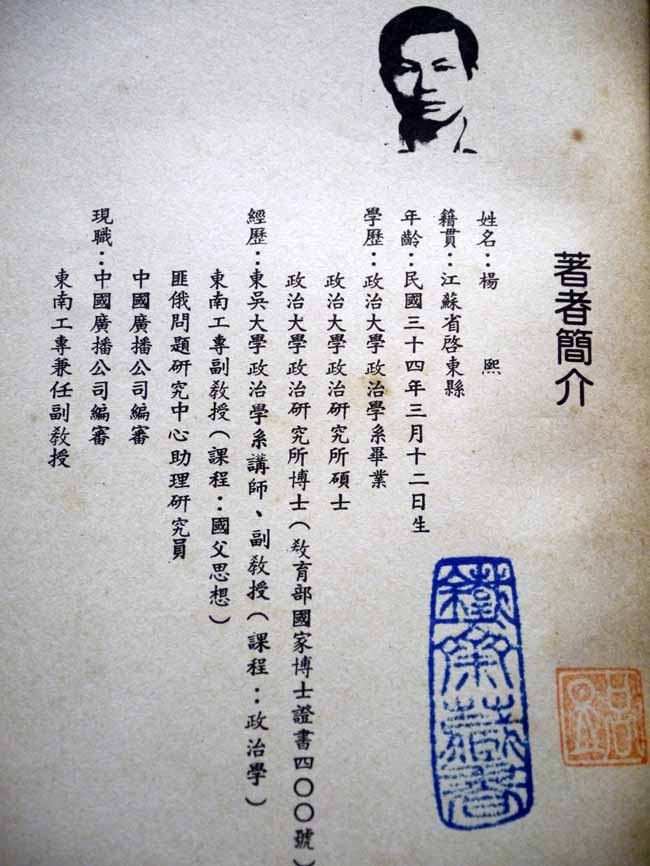 著者簡介
姓名：楊　熙
籍貫：江蘇省啓東縣
年齡：民國三十四年三月十二日生
學歷：政治大學政治學系畢業
政治大學政治研究所碩士
政治大學政治研究所博士（教育部國家博士證書四〇〇號）
經歷：東吳大學政治學系講師、副教授（課程：政治學）
東南工專副教授（課程：國父思想）
匪俄問題研究中心助理研究員
中國廣播公司編審
現職：中國廣播公司編審
東南工專兼任副教授